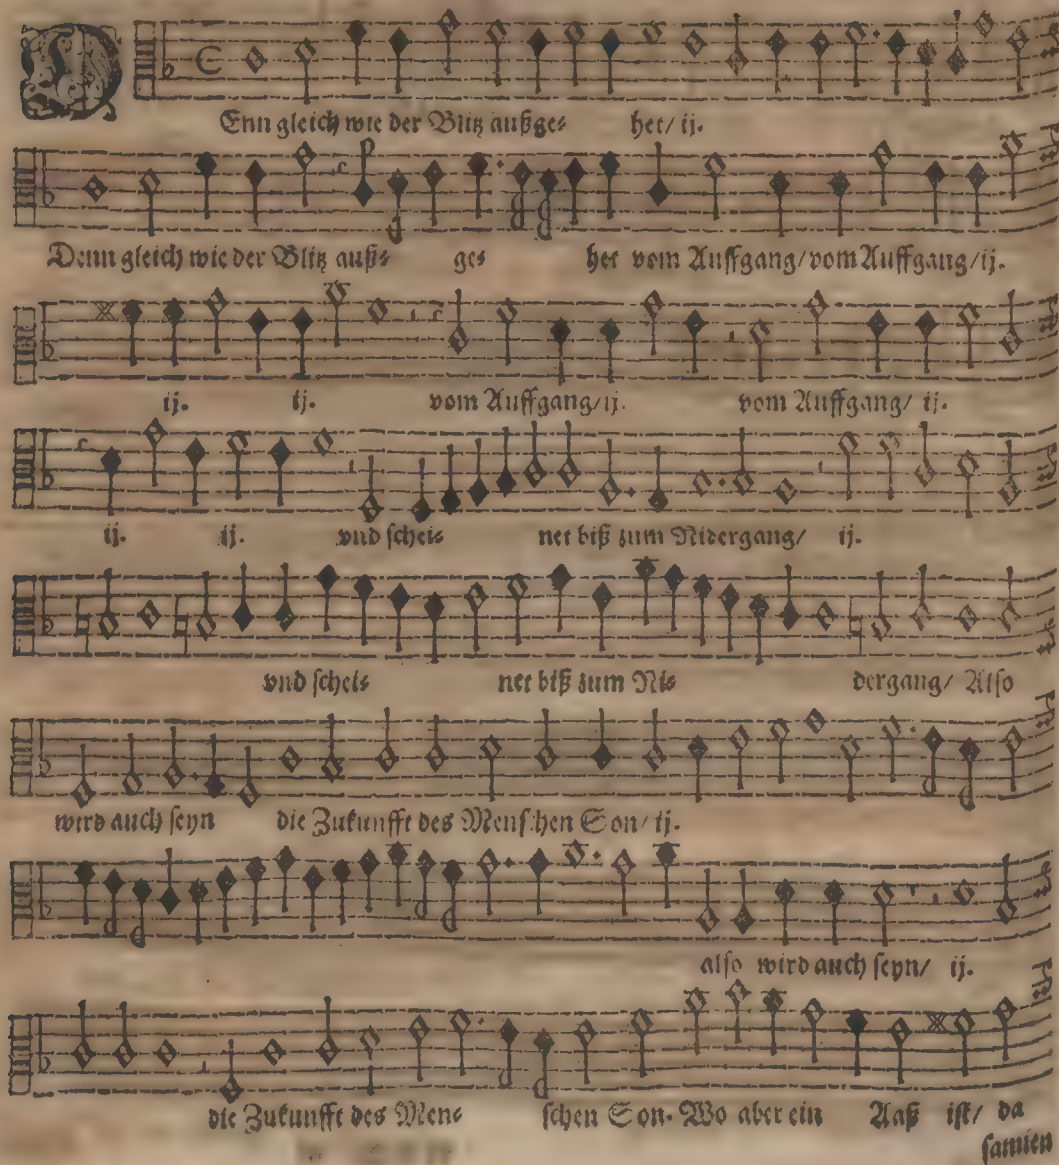 DEnn gleich wie der Blitz außge- het/ ij.
Denn gleich wie der Blitz auß- ge- het vom Auffgang/ vom Auffgang/ ij.
ij. ij. vom Auffgang/ ij. vom Auffgang/ ij.
ij. ij. vnd schei- net biß zum Nidergang/ ij.
vnd schei- net biß zum Ni- dergang/ Also
wird auch seyn die Zukunfft des Menschen Son/ ij.
also wird auch seyn/ ij.
die Zukunfft des Men- schen Son. Wo aber ein Aaß ist/ da
samlen